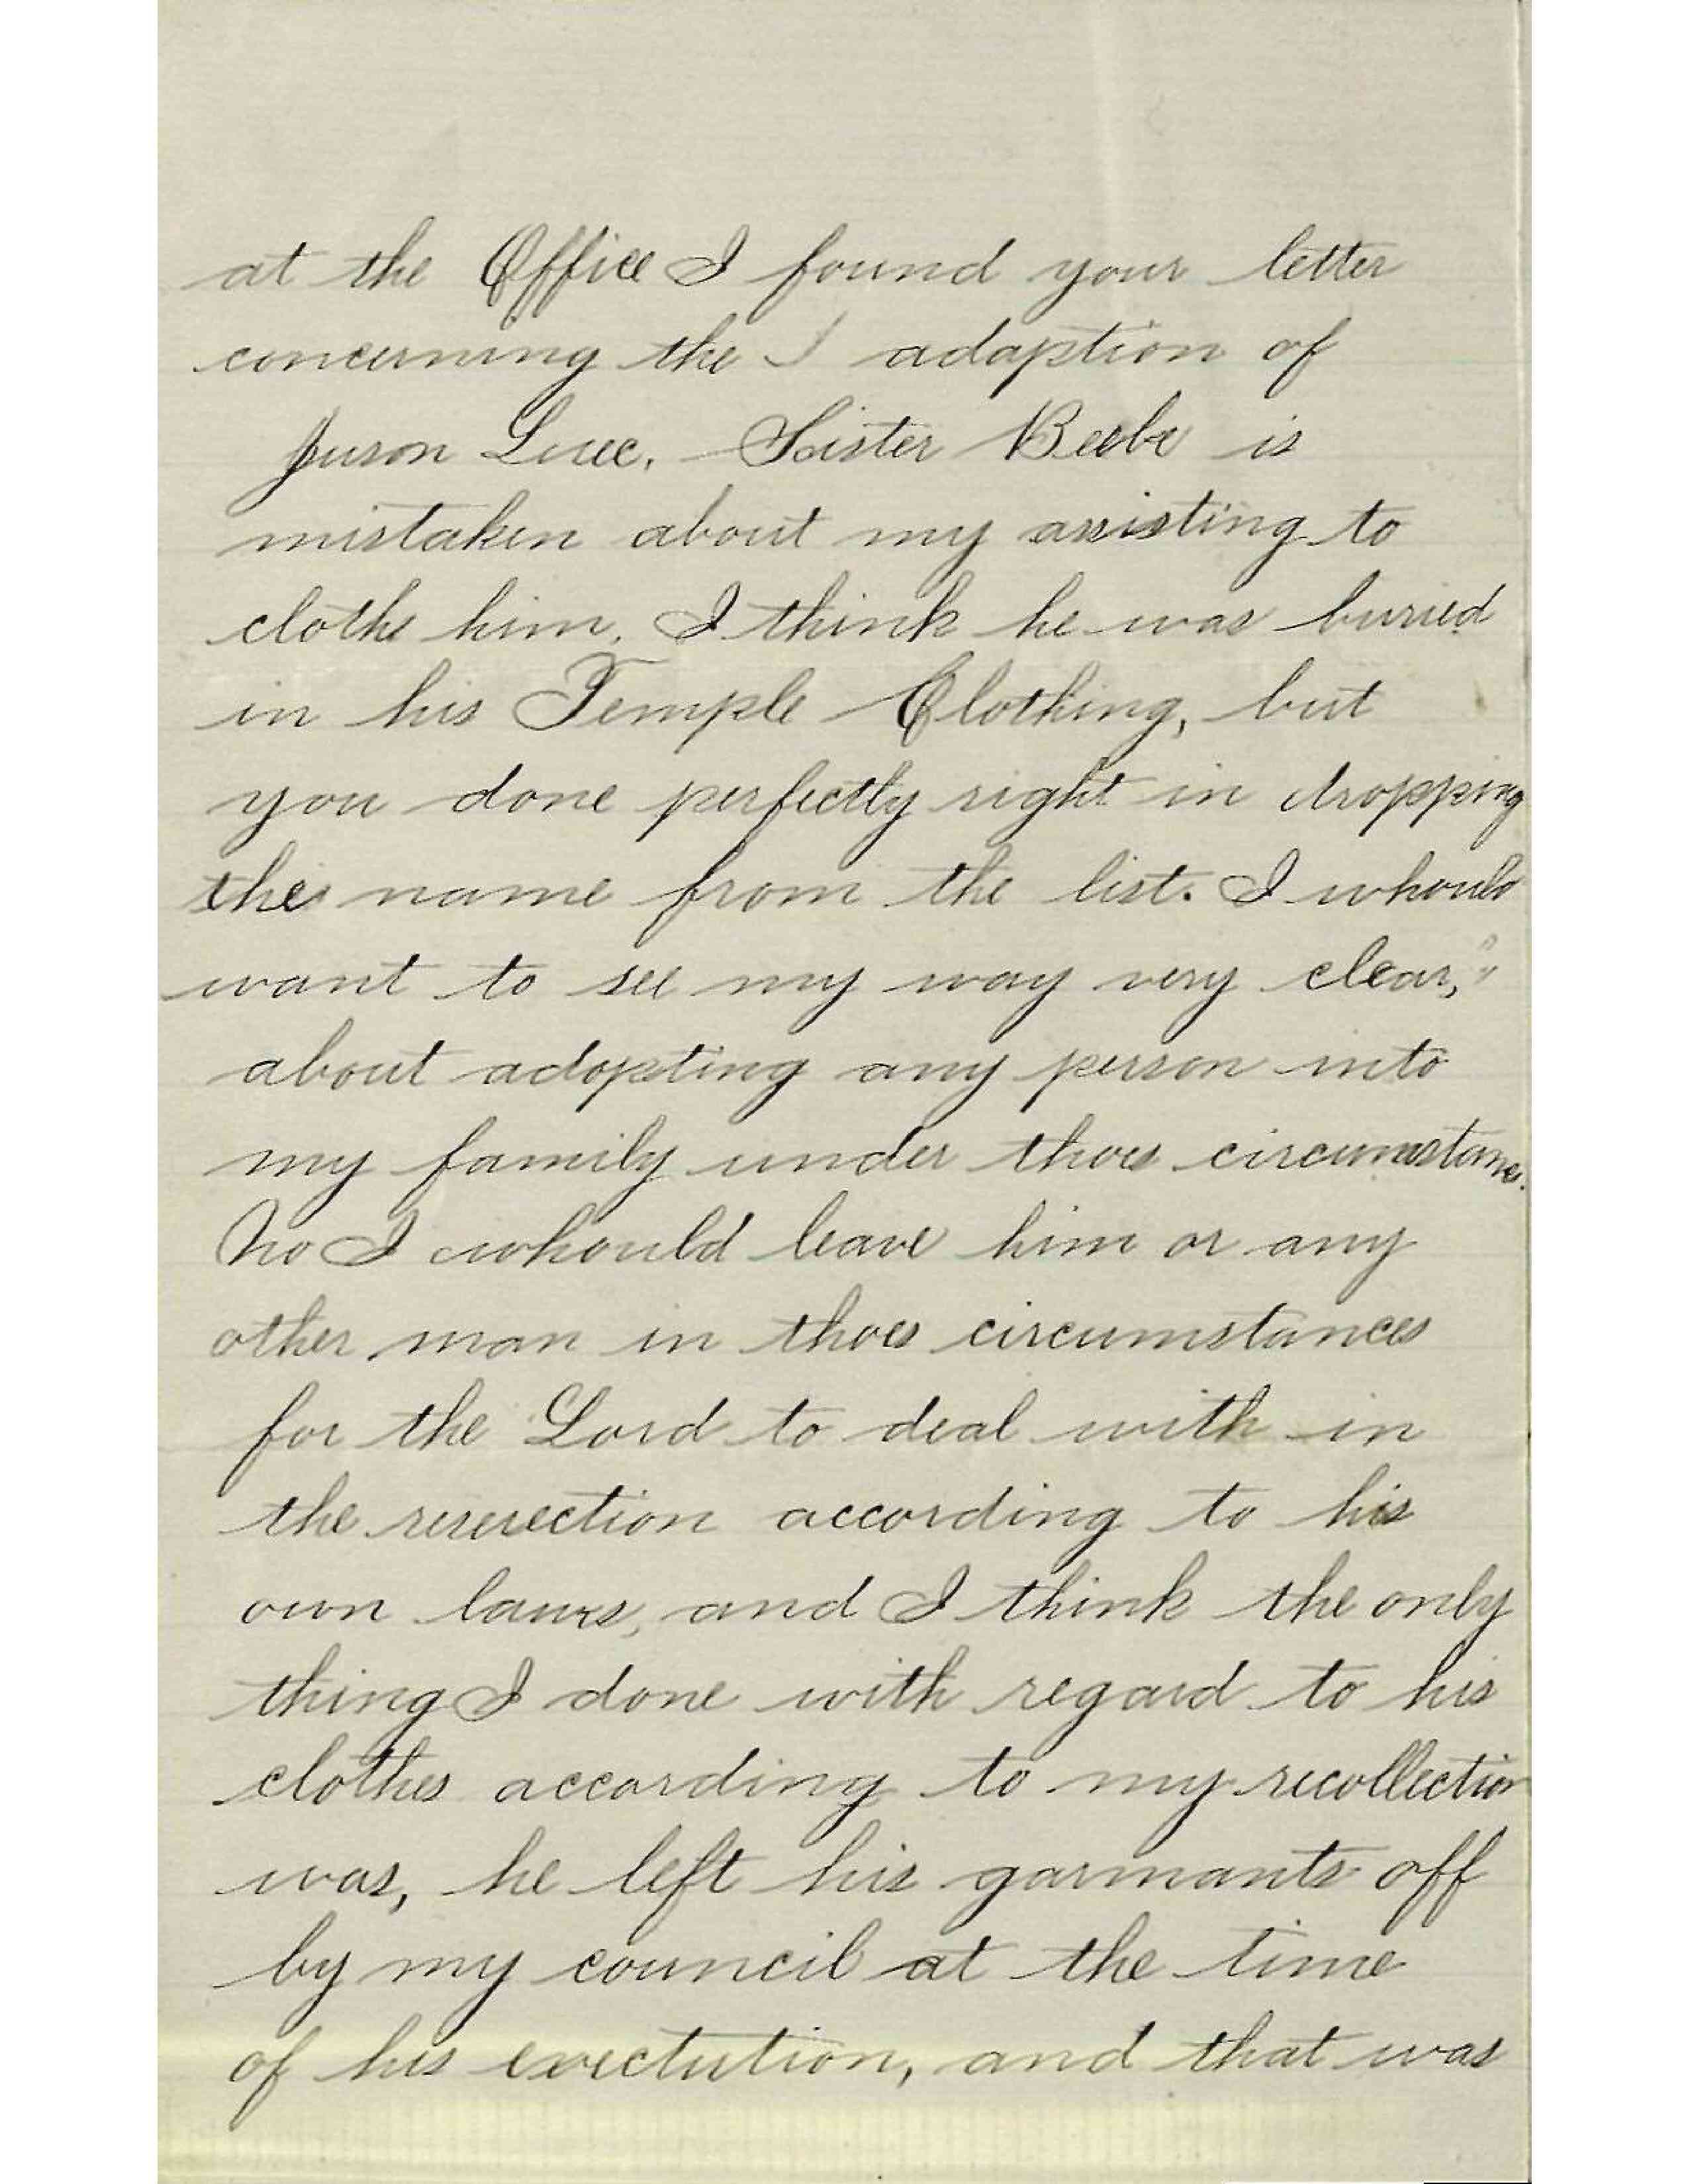 at the Office I found your letter
concerning the I adoption of
Juson Luce. Sister Beebe is
mistaken about my assisting to
clothe him. I think he was buried
in his Temple Clothing, but
you done perfectly right in dropping
the name from the list. I whould
want to see my way very clear,
about adopting any person into
my family under thoes circumstances.
No I whould leave him or any
other man in thoes circumstances
for the Lord to deal with in
the resurection according to his
own laws, and I think the only
thing I done with regard to his
clothes according to my recollection
was, he left his garmants off
by my council at the time
of his exectution, and that was